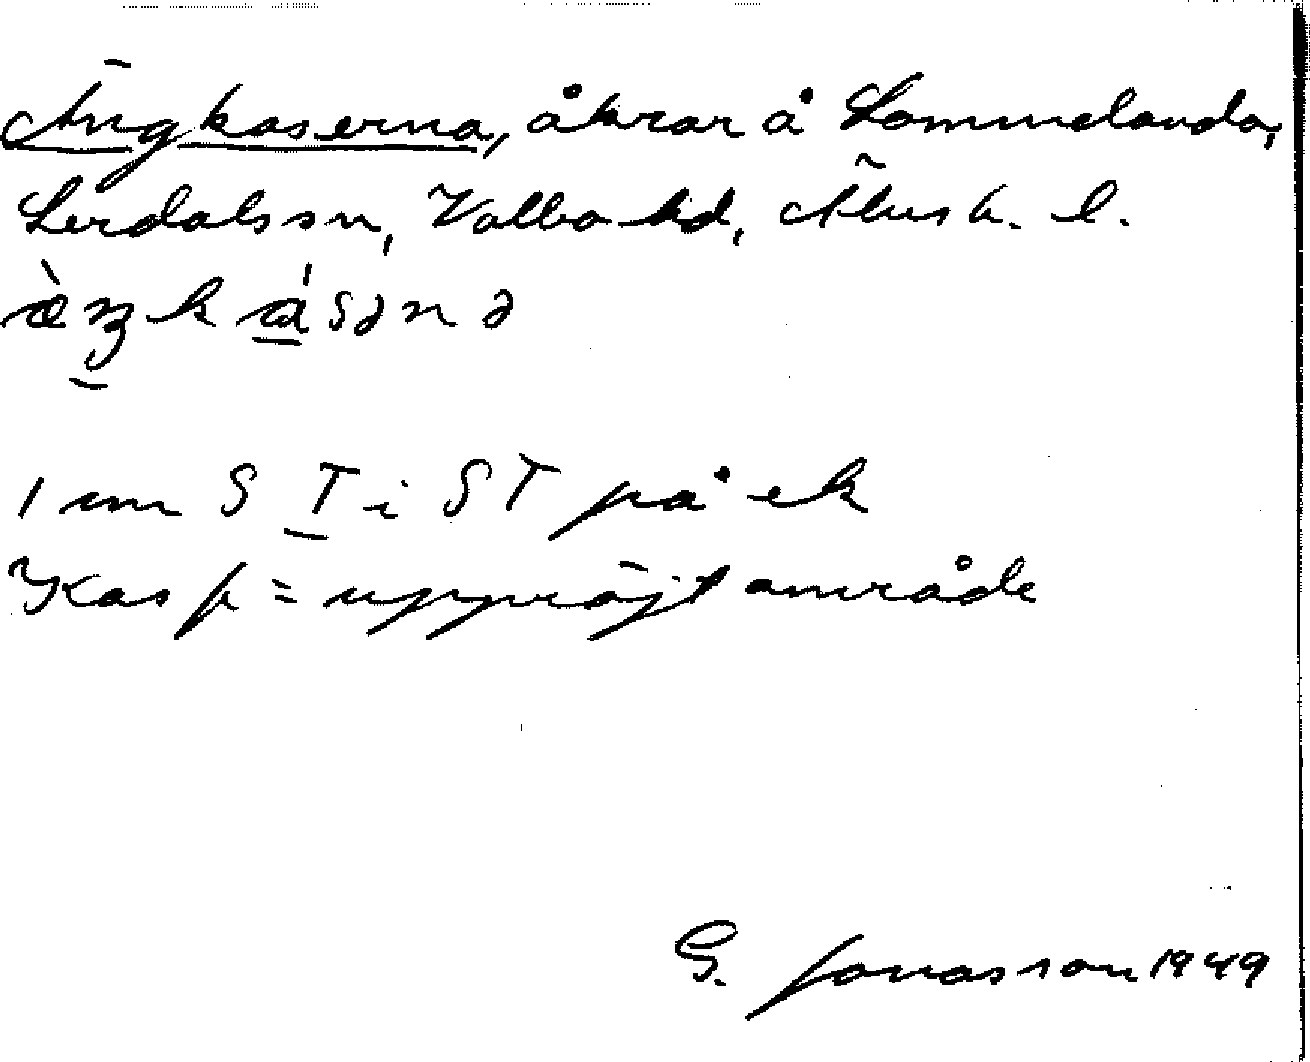 Ängkaserna, åkrar å Sommelanda,
Lerdals sn, Valbo hd, Älvsb. l.
æ̀ŋkásənə
1 mm S T i ST på ek
Kas f. = uppröjt område
G. Jonasson 1949